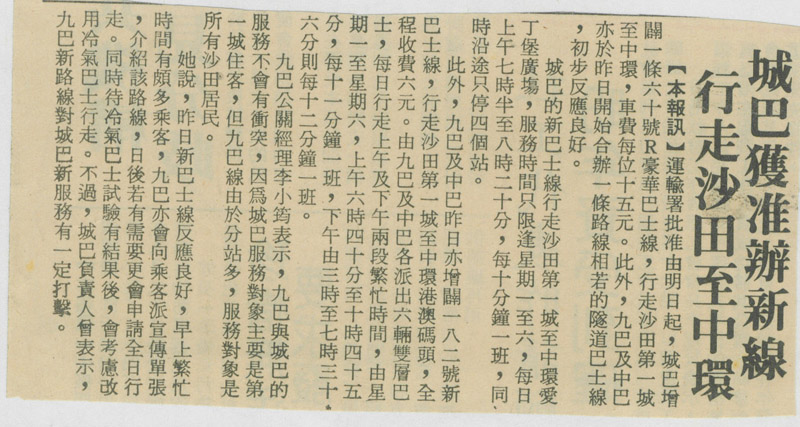 城巴獲准辦新線
行走沙田至中環
【本報訊】運輸署批准由明日起，城巴增
闢一條六十號R豪華巴士線，行走沙田第一城
至中環，車費每位十五元。此外，九巴及中巴
亦於昨日開始合辦一條路線相若的隧道巴士線
，初步反應良好。
城巴的新巴士線行走沙田第一城至中環愛
丁堡廣場，服務時間只限逢星期一至六，每日
上午七時半至八時二十分，每十分鐘一班，同
時沿途只停四個站。
此外，九巴及中巴昨日亦增闢一八二號新
巴士線，行走沙田第一城至中環港澳碼頭，全
程收費六元。由九巴及中巴各派出六輛雙層巴
士，每日行走上午及下午兩段繁忙時間，由星
期一至星期六，上午六時四十分至十時四十五
分，每十一分鐘一班，下午由三時至七時三十
六分則每十二分鐘一班。
九巴公關經理李小筠表示，九巴與城巴的
服務不會有衝突，因爲城巴服務對象主要是第
一城住客，但九巴線由於分站多，服務對象是
所有沙田居民。
她說，昨日新巴士線反應良好，早上繁忙
時間有頗多乘客，九巴亦會向乘客派宣傳單張
，介紹該路線，日後若有需要更會申請全日行
走。同時待冷氣巴士試驗有結果後，會考慮改
用冷氣巴士行走。不過，城巴負責人曾表示，
九巴新路線對城巴新服務有一定打擊。